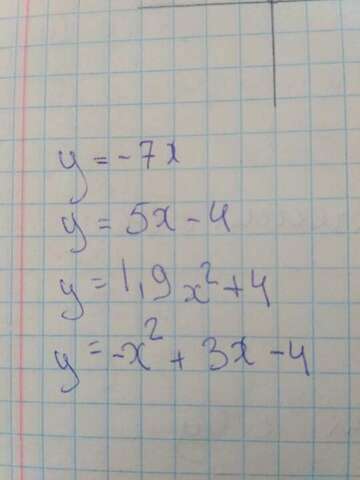 y = -7x
y = 5x - 4
y = 1,9x² + 4
y = -x² + 3x - 4